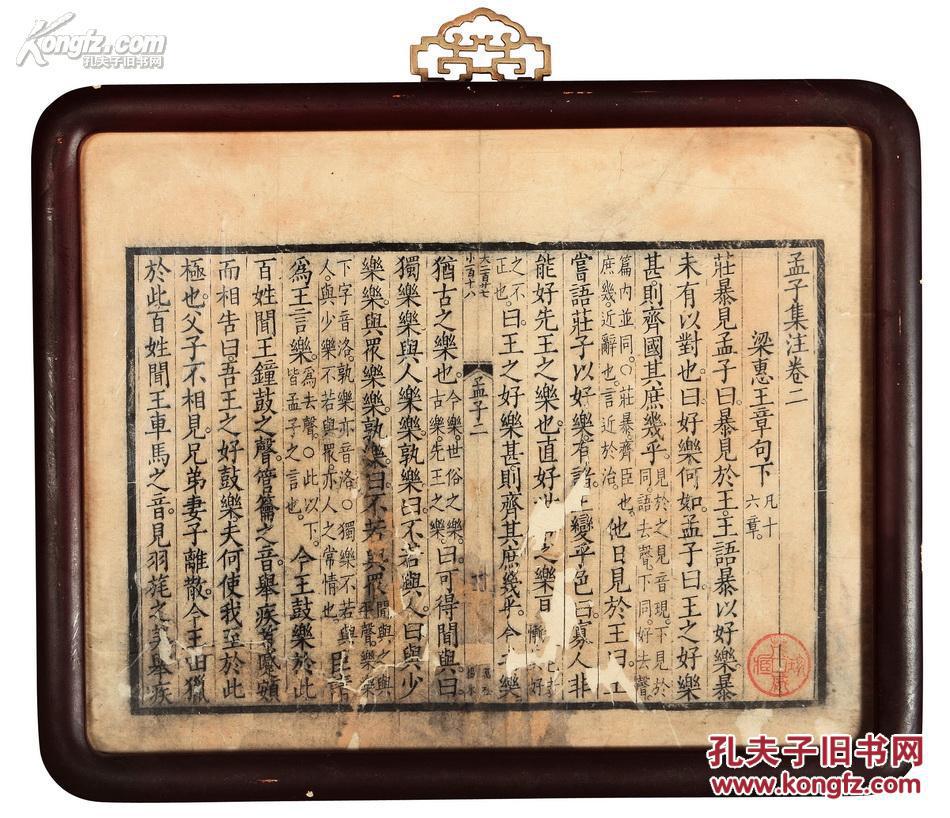 Kongfz.com
孔夫子旧书网
孟子集注卷二
梁惠王章句下 凡十六章。
莊暴見孟子曰。暴見於王。王語暴以好樂。暴
未有以對也。曰好樂何如。孟子曰。王之好樂
甚。則齊國其庶幾乎。見於之見音現。下見於同。語去聲。下同。好去聲。
篇内並同。○莊暴。齊臣也。庶幾。近辭也。言近於治。他日見於王曰。王
嘗語莊子以好樂有諸。王變乎色曰。寡人非
能好先王之樂也。直好世之樂
之不正也。曰。王之好樂甚。則齊其庶幾乎。今樂
大二百廿七
小百十八
孟子二
猶古之樂也。今樂。世俗之樂。古樂。先王之樂。曰。可得聞與。曰。
獨樂樂。與人樂樂。孰樂。曰。不若與人。曰。與少
樂樂。與眾樂樂。孰樂。曰。不若與眾。聞與之與平聲。樂樂
下字音洛。孰樂亦音洛。○獨樂不若與人。與少樂不若與眾。亦人之常情也。臣請
爲王言樂。爲去聲。○此以下。皆孟子之言也。今王鼓樂於此。
百姓聞王鐘鼓之聲。管籥之音。舉疾首蹙頞
而相告曰。吾王之好鼓樂。夫何使我至於此
極也。父子不相見。兄弟妻子離散。今王田獵
於此。百姓聞王車馬之音。見羽旄之美。舉疾
孔夫子旧书网
www.kongfz.com